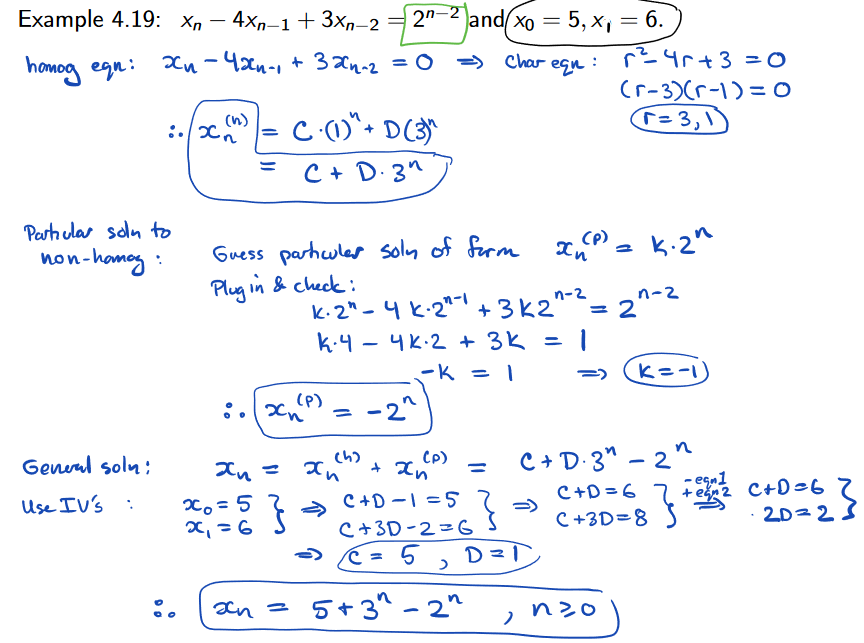 Example 4.19: xₙ − 4xₙ₋₁ + 3xₙ₋₂ = 2ⁿ⁻² and x₀ = 5, x₁ = 6.
homog eqn: xₙ − 4xₙ₋₁ + 3xₙ₋₂ = 0 ⇒ Char eqn: r² − 4r + 3 = 0
(r−3)(r−1) = 0
r = 3, 1
∴ xₙ⁽ʰ⁾ = C·(1)ⁿ + D(3)ⁿ
= C + D·3ⁿ
Particular soln to
non-homog :
Guess particular soln of form xₙ⁽ᵖ⁾ = k·2ⁿ
Plug in & check:
k·2ⁿ − 4k·2ⁿ⁻¹ + 3k2ⁿ⁻² = 2ⁿ⁻²
k·4 − 4k·2 + 3k = 1
−k = 1 ⇒ k = −1
∴ xₙ⁽ᵖ⁾ = −2ⁿ
General soln: xₙ = xₙ⁽ʰ⁾ + xₙ⁽ᵖ⁾ = C + D·3ⁿ − 2ⁿ
Use IV's : x₀ = 5 } ⇒ C+D−1 = 5 } ⇒ C+D = 6 } −eqn1 ⇒ C+D = 6 }
x₁ = 6 C+3D−2 = 6 C+3D = 8 +eqn2 2D = 2
⇒ C = 5 , D = 1
∴ xₙ = 5 + 3ⁿ − 2ⁿ , n ≥ 0